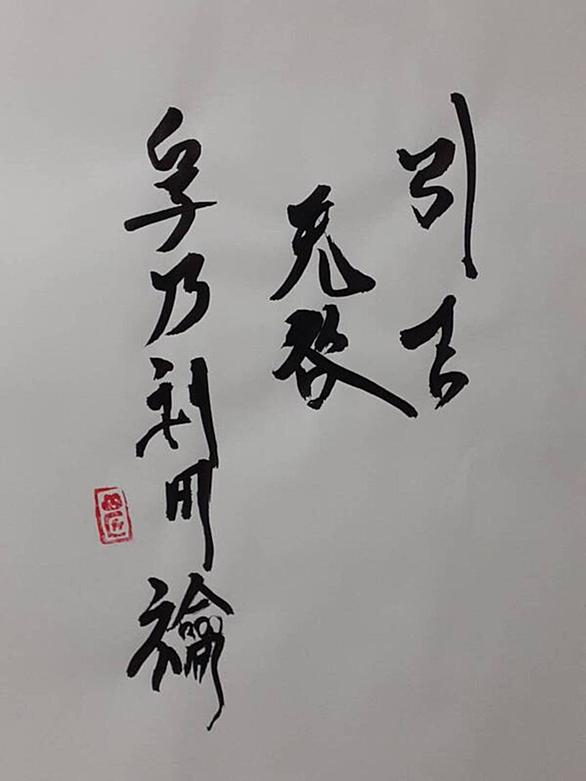 引吉
无咎
孚乃利用禴